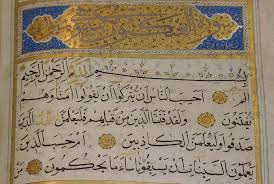 العنكبوت
بِسْمِ اللهِ الرَّحْمٰنِ الرَّحِيمِ
الم اَحَسِبَ النَّاسُ اَنْ يُتْرَكُوا اَنْ يَقُولُوا اٰمَنَّا وَهُمْ لَا
يُفْتَنُونَ وَلَقَدْ فَتَنَّا الَّذِينَ مِنْ قَبْلِهِمْ فَلَيَعْلَمَنَّ اللهُ الَّذِينَ
صَدَقُوا وَلَيَعْلَمَنَّ الْكَاذِبِينَ اَمْ حَسِبَ الَّذِينَ
يَعْمَلُونَ السَّيِّئَاتِ اَنْ يَسْبِقُونَا سَاءَ مَا يَحْكُمُونَ